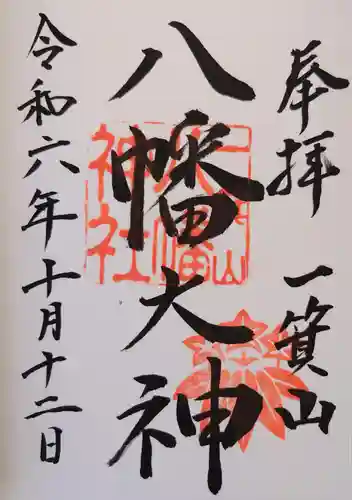 奉拝 一箕山
八幡大神
令和六年十月十二日